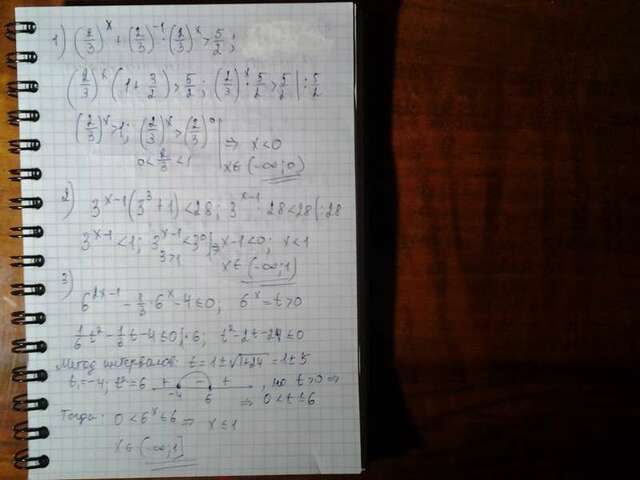 1) (2/3)^x + (2/3)^-1 · (2/3)^x > 5/2;
(2/3)^x (1 + 3/2) > 5/2; (2/3)^x · 5/2 > 5/2 | : 5/2
(2/3)^x > 1; (2/3)^x > (2/3)^0 | ⇒ x < 0
0 < 2/3 < 1 | x ∈ (-∞; 0)
2) 3^(x-1) (3^3 + 1) < 28; 3^(x-1) · 28 < 28 | : 28
3^(x-1) < 1; 3^(x-1) < 3^0 | ⇒ x-1 < 0; x < 1
3>1 x ∈ (-∞; 1)
3)
6^(2x-1) - 1/3 · 6^x - 4 ≤ 0; 6^x = t > 0
1/6 t² - 1/3 t - 4 ≤ 0 | · 6; t² - 2t - 24 ≤ 0
Метод интервалов: t = 1 ± √1+24 = 1 ± 5
t = -4; t = 6 + - + , но t > 0 ⇒
-4 6 ⇒ 0 < t ≤ 6
Тогда: 0 < 6^x ≤ 6 ⇒ x ≤ 1
x ∈ (-∞; 1]